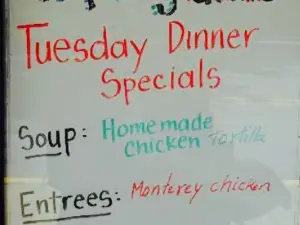 Tuesday Dinner
Specials
Soup: Homemade
chicken Tortilla
Entrees: Monterey chicken